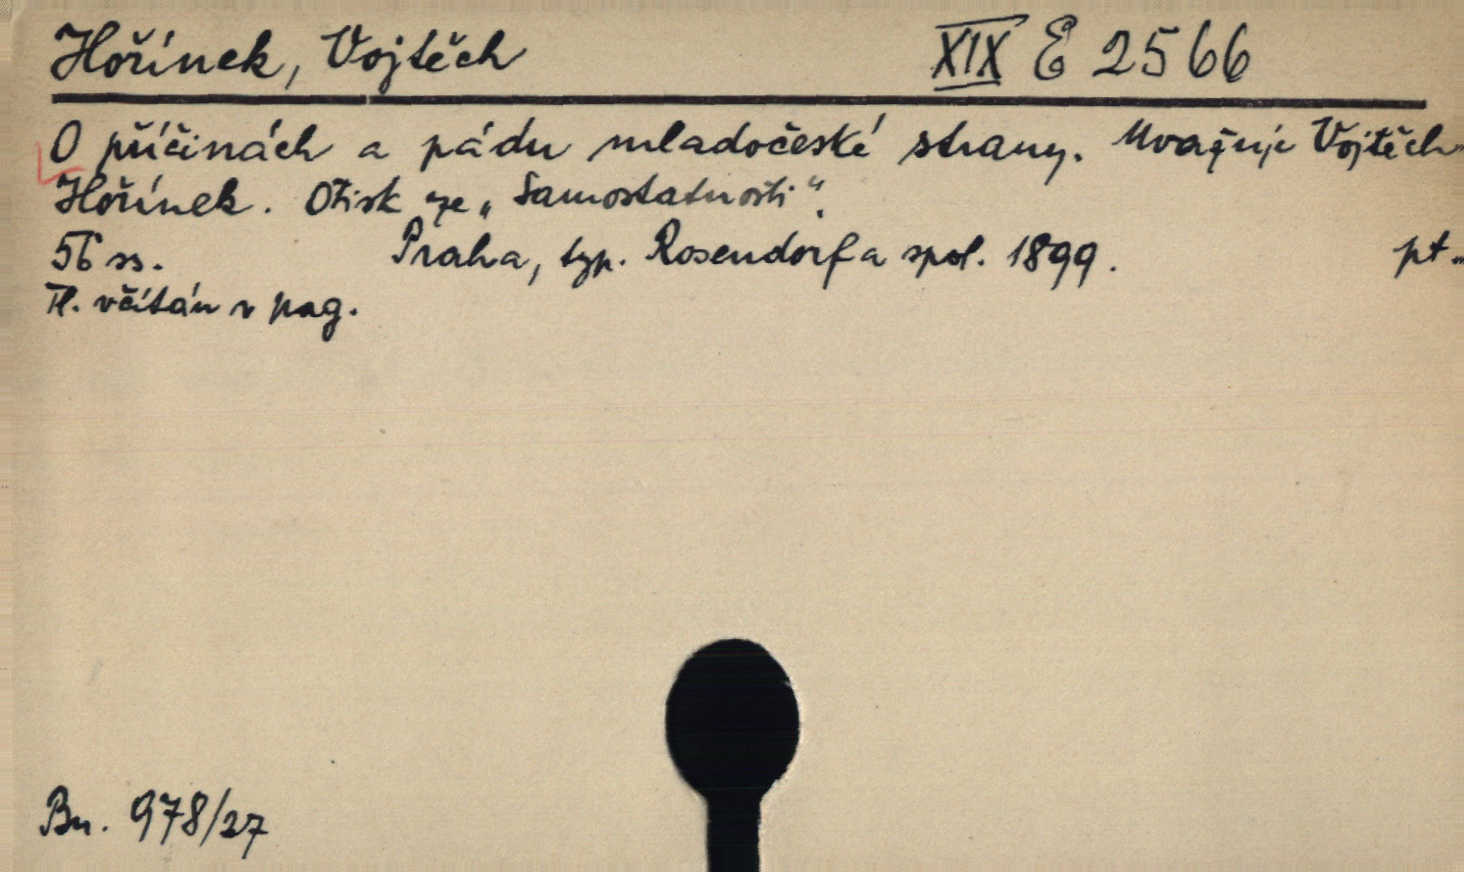 Hořínek, Vojtěch XIX E 2566
O příčinách a pádu mladočeské strany. Uvažuje Vojtěch
Hořínek. Otisk ze „Samostatnosti“.
56 ss. Praha, typ. Rosendorf a spol. 1899. pt.
Tl. včítán v pag.
Bn. 978/27